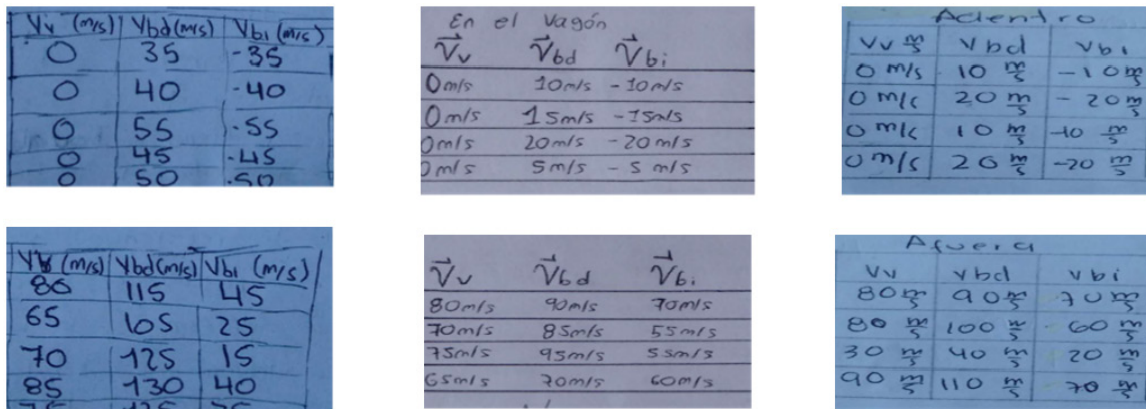 Vv (m/s) Vbd (m/s) Vbi (m/s)
0 35 -35
0 40 -40
0 55 -55
0 45 -45
0 50 -50
En el Vagón
V⃗v V⃗bd V⃗bi
0m/s 10m/s -10m/s
0m/s 15m/s -15m/s
0m/s 20m/s -20m/s
0m/s 5m/s -5 m/s
Adentro
Vv m/s Vbd Vbi
0 m/s 10 m/s -10 m/s
0 m/s 20 m/s -20 m/s
0 m/s 10 m/s -10 m/s
0 m/s 20 m/s -20 m/s
(m/s) Vbd (m/s) Vbi (m/s)
80 115 45
65 105 25
70 125 15
85 130 40
V⃗v V⃗bd V⃗bi
80m/s 90m/s 70m/s
70m/s 85m/s 55m/s
75m/s 95m/s 55m/s
65m/s 70m/s 60m/s
Afuera
Vv Vbd Vbi
80 m/s 90 m/s 70 m/s
80 m/s 100 m/s 60 m/s
30 m/s 40 m/s 20 m/s
90 m/s 110 m/s 70 m/s